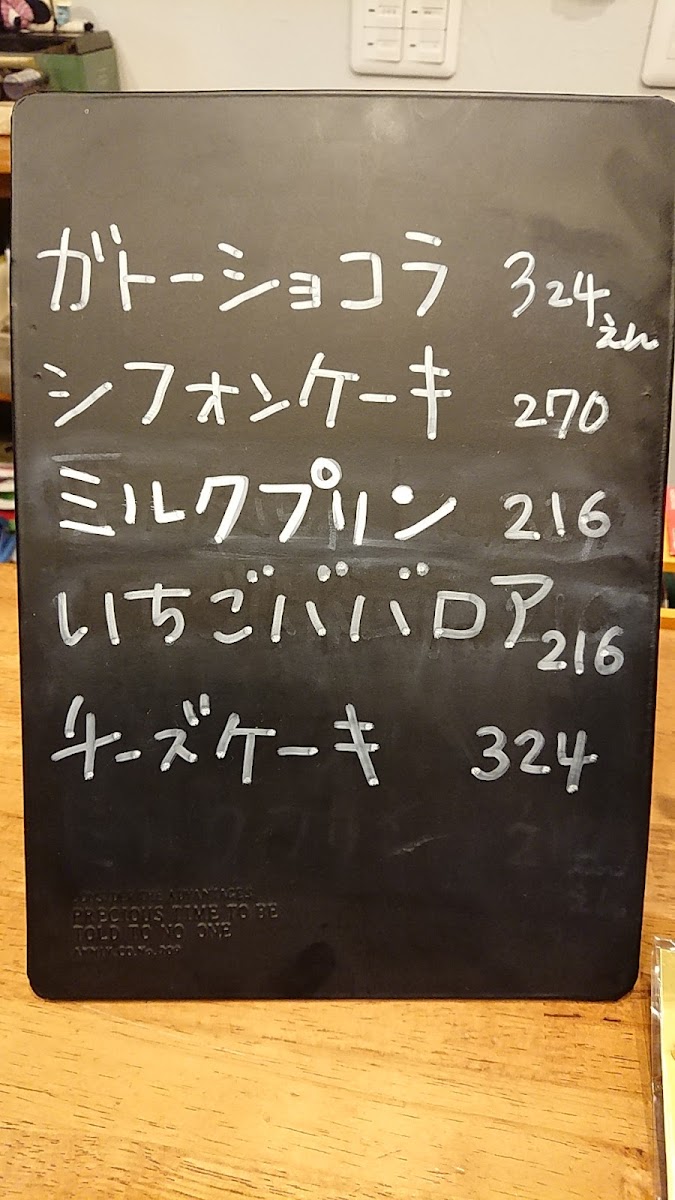 ガトーショコラ 324えん
シフォンケーキ 270
ミルクプリン 216
いちごババロア 216
チーズケーキ 324
PRECIOUS TIME TO BE
TOLD TO NO ONE